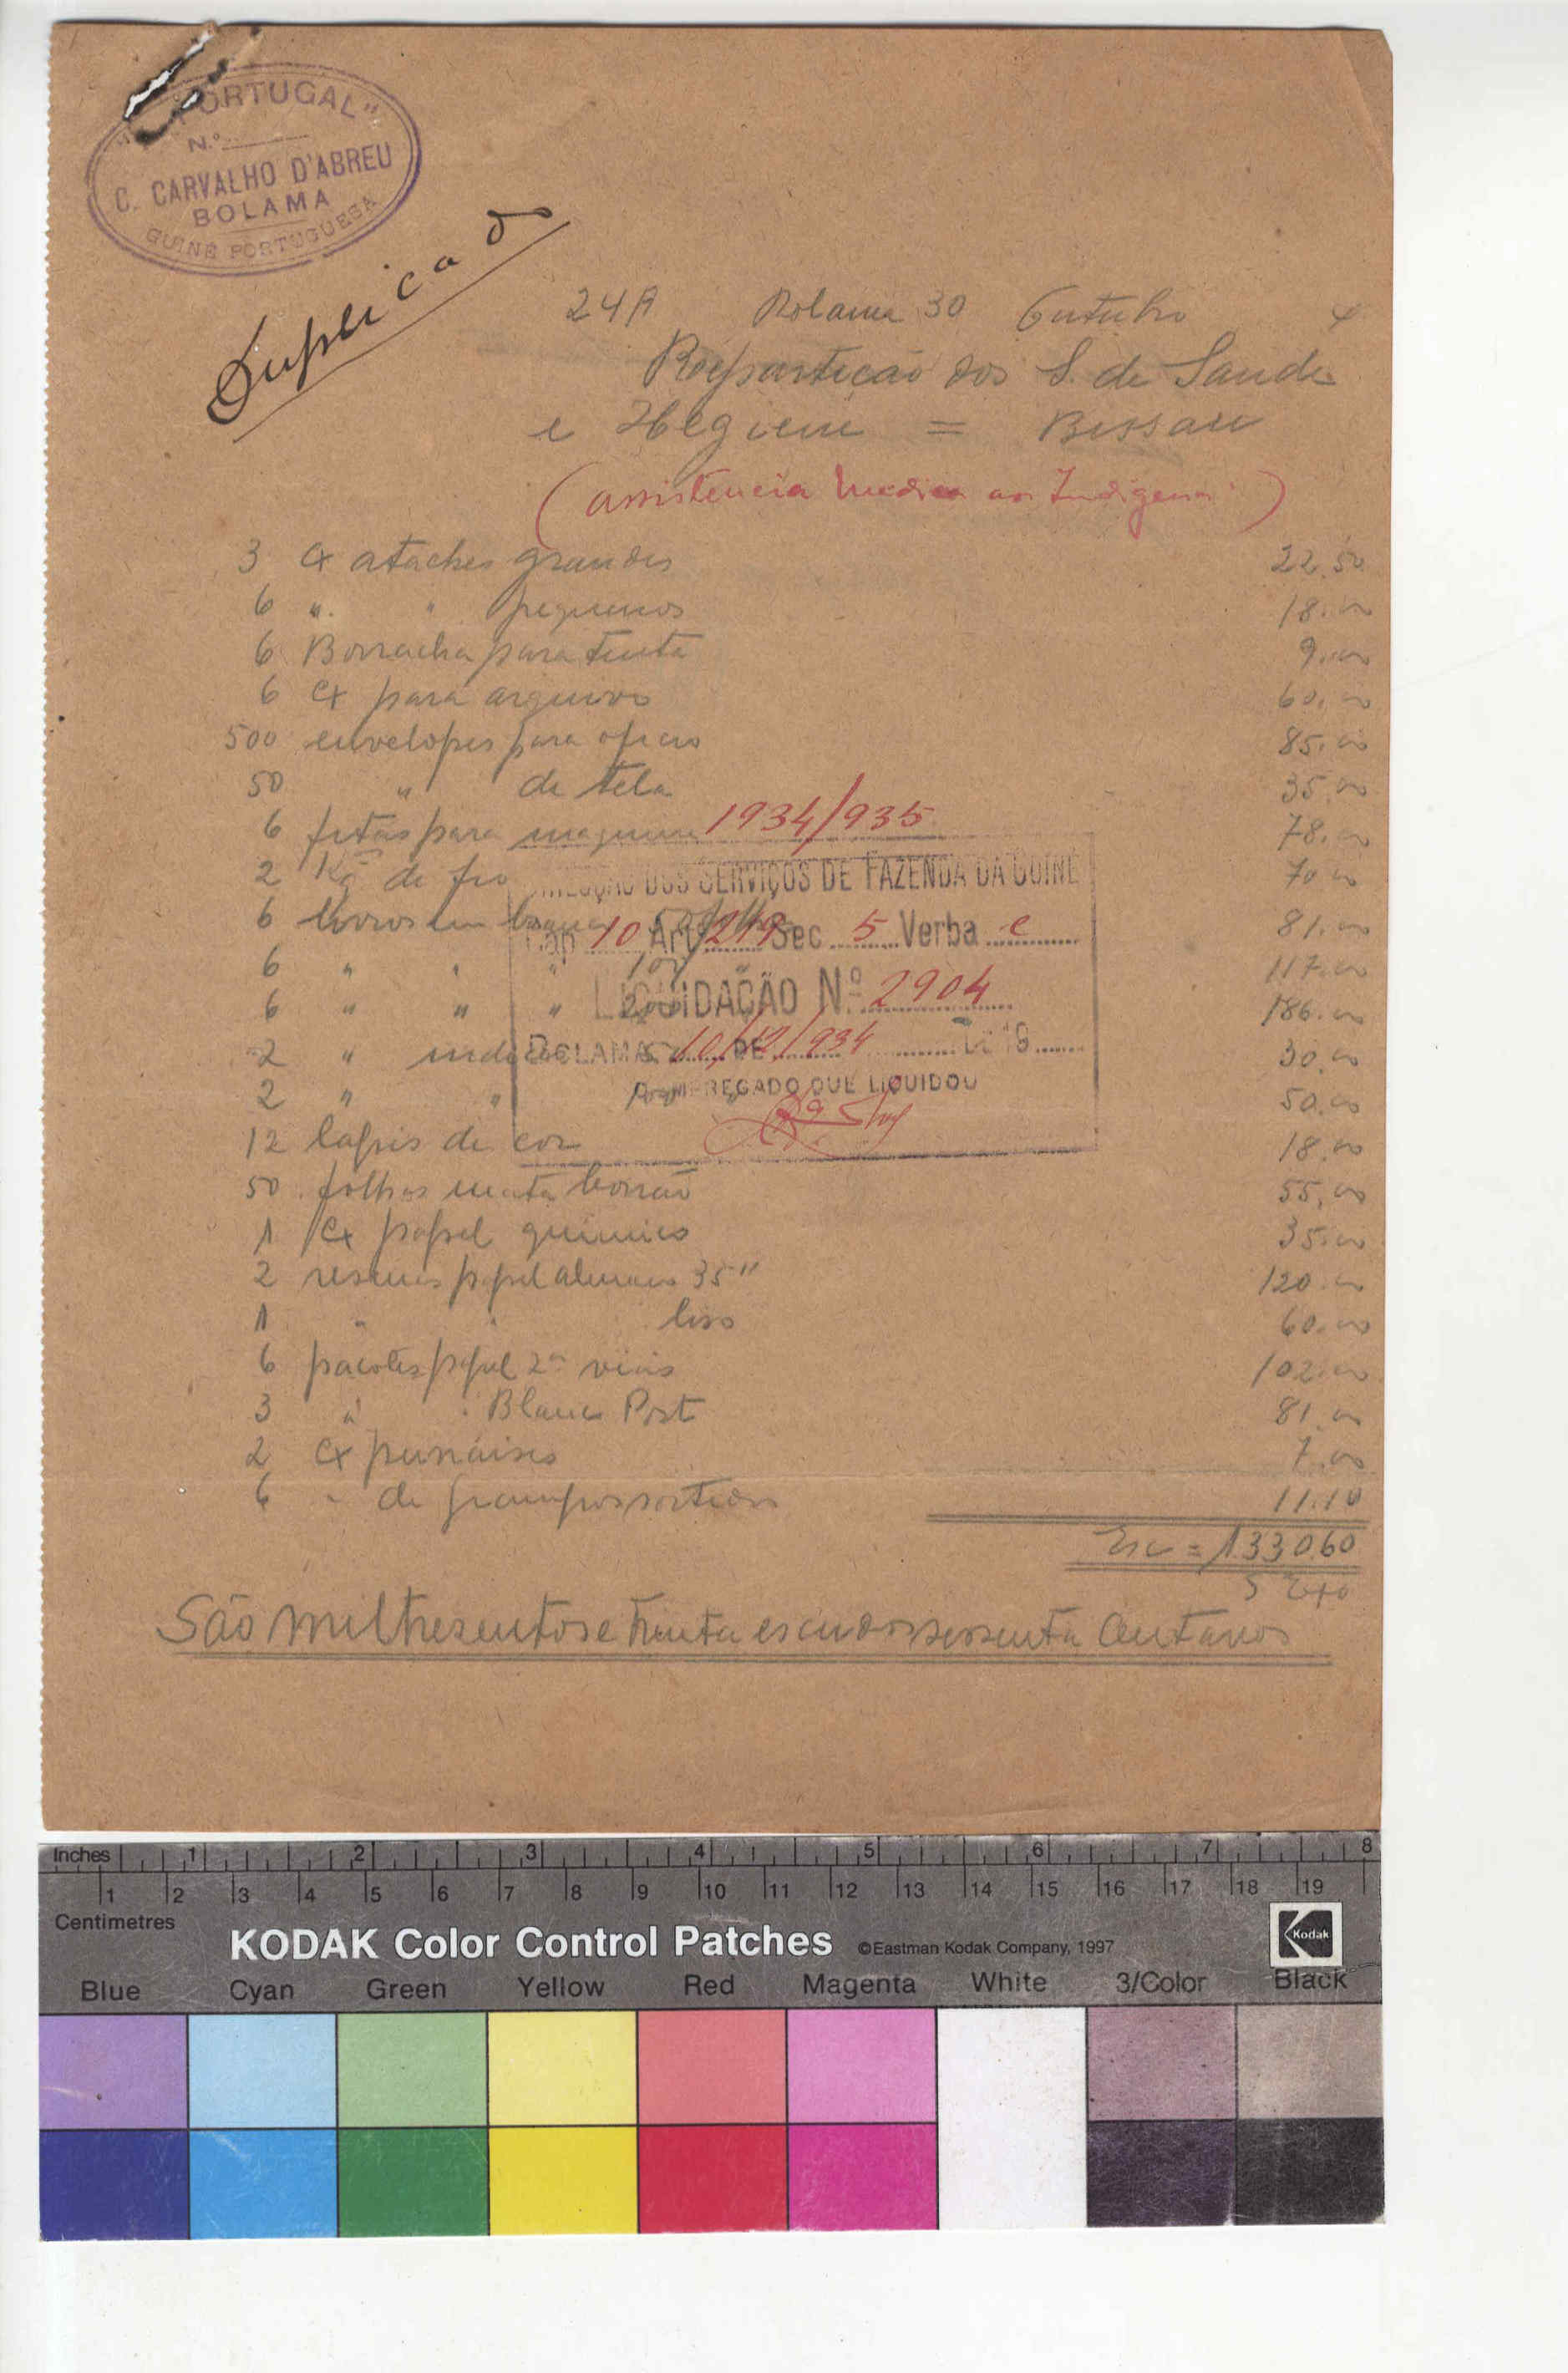 "PORTUGAL"
N.º
C. CARVALHO D'ABREU
BOLAMA
GUINÉ PORTUGUESA
Duplicado
24A Bolama 30 Outubro 4
Repartição dos S. de Saude
e Higiene = Bissau
(assistencia Medica aos Indigenas)
3 Cx ataches grandes 22.50
6 " " pequenos 18.00
6 Borracha para tinta 9.00
6 Cx para arquivo 60.00
500 envelopes para oficio 85.00
50 " de tela 35.00
6 fitas para maquina 78.00
2 Kg de fio 70.00
6 livros em branco 50 folhas 81.00
6 " " " 100 " 117.00
6 " " " 200 186.00
2 " indice 50 30.00
2 " " 100 50.00
12 lapis de cor 18.00
50 folhas mata borrão 55.00
1 Cx papel quimico 35.00
2 resmas papel almaço 35" 120.00
1 " " liso 60.00
6 pacotes papel 2as vias 102.00
3 " " Blanco Post 81.00
2 Cx punaises 7.00
6 " de grampos sortidos 11.10
Esc = 1.330.60
São mil tresentos e trinta escudos sessenta Centavos
1934/935
DIRECÇÃO DOS SERVIÇOS DE FAZENDA DA GUINÉ
Cap 10 Art 219 Sec 5 Verba e
LIQUIDAÇÃO Nº 2904
BOLAMA 10/12/934 DE DE 19
O EMPREGADO QUE LIQUIDOU
Inches 1 2 3 4 5 6 7 8
1 2 3 4 5 6 7 8 9 10 11 12 13 14 15 16 17 18 19
Centimetres
KODAK Color Control Patches ©Eastman Kodak Company, 1997 Kodak
Blue Cyan Green Yellow Red Magenta White 3/Color Black